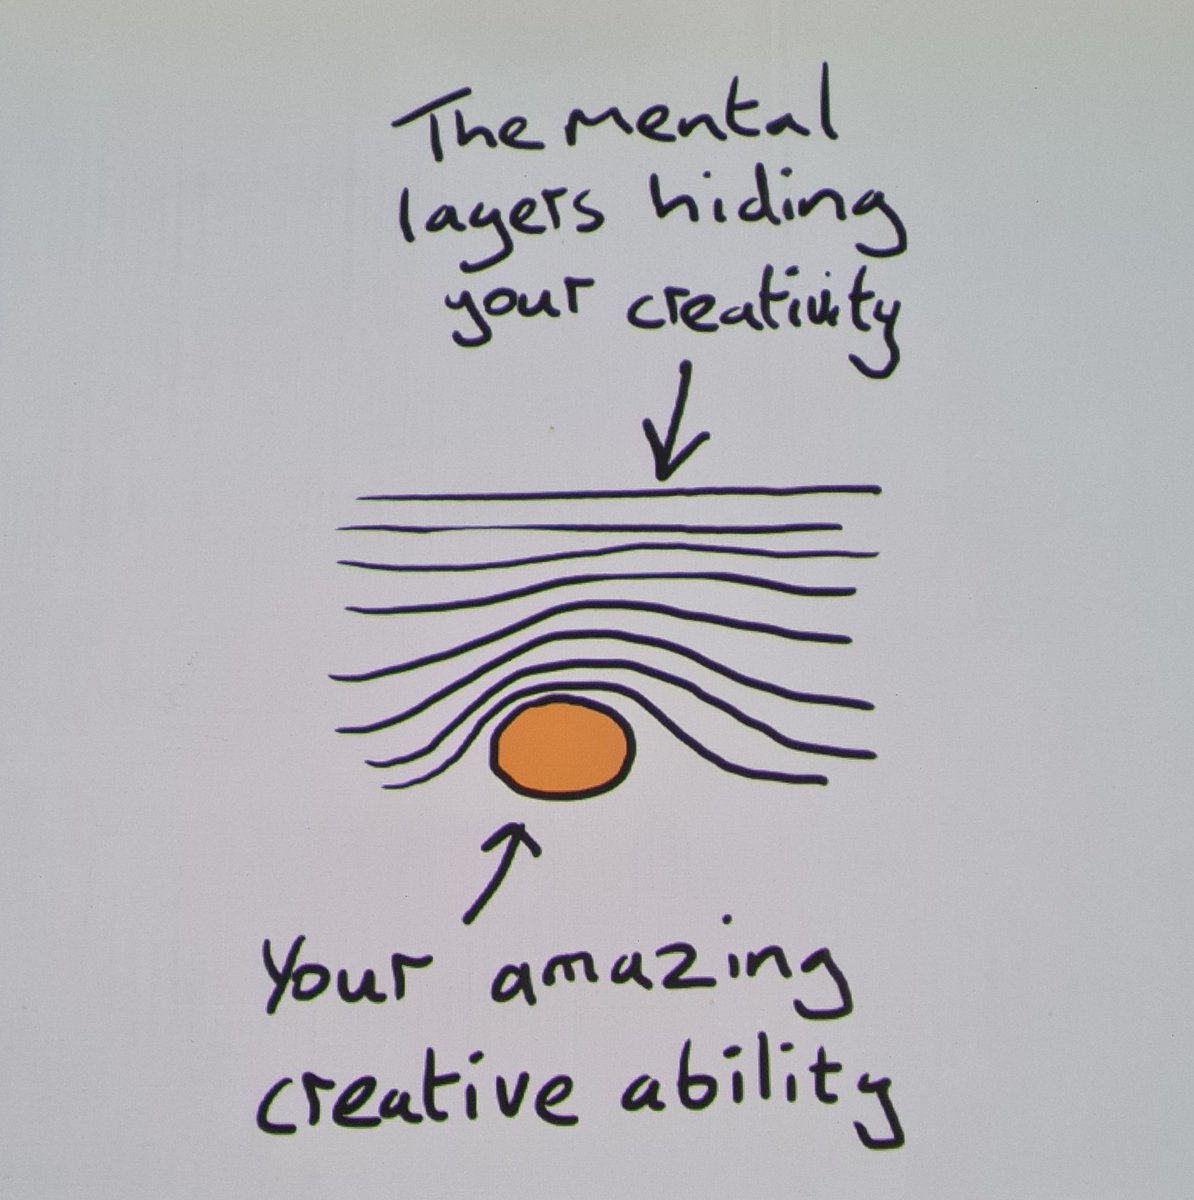 The mental
layers hiding
your creativity
Your amazing
creative ability